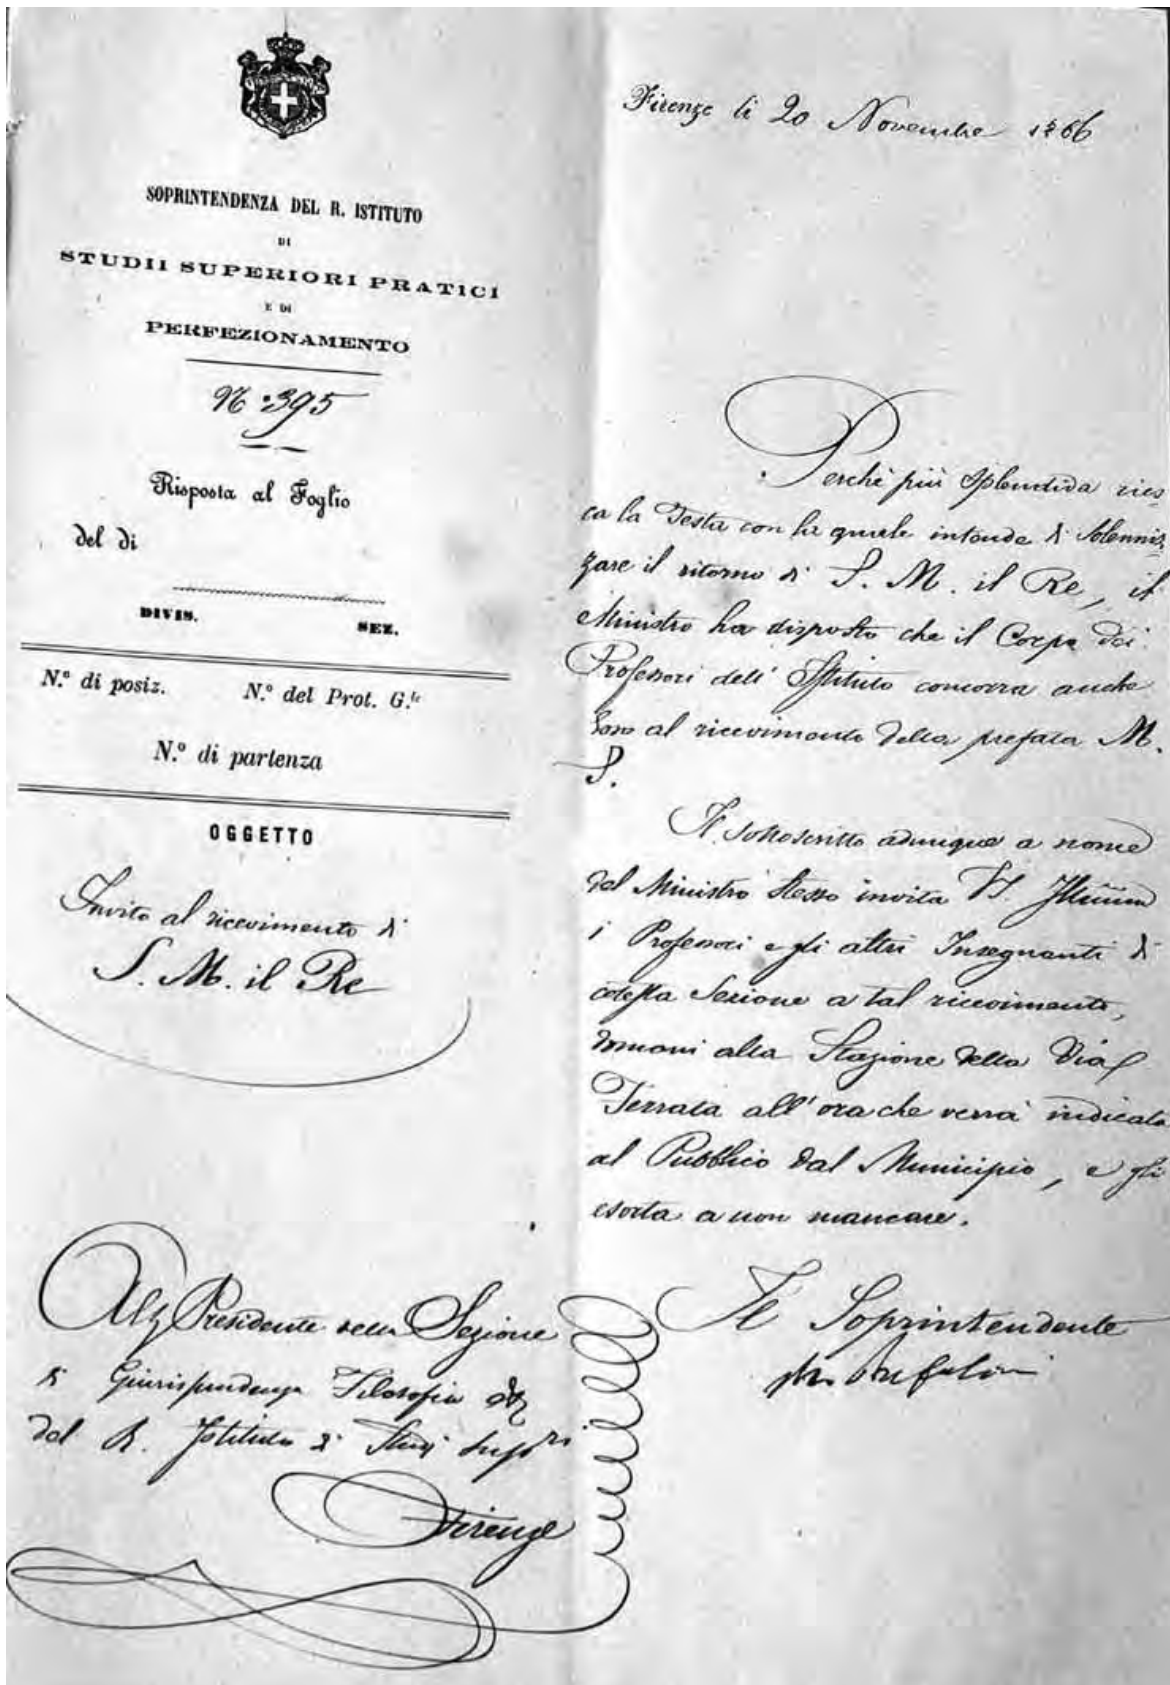 SOPRINTENDENZA DEL R. ISTITUTO
DI
STUDII SUPERIORI PRATICI
E DI
PERFEZIONAMENTO
N.º 395
Risposta al Foglio
del di
DIVIS. SEZ.
N.º di posiz. N.º del Prot. G.le
N.º di partenza
OGGETTO
Invito al ricevimento di
S. M. il Re
Presidente della Sezione
di Giurisprudenza Filosofia
del R. Istituto di Studj Sup.ri
Firenze
Firenze li 20 Novembre 1866
Perchè più splendida ries-
ca la Festa con la quale intende di solenniz-
zare il ritorno di S. M. il Re, il
Ministro ha disposto che il Corpo dei
Professori dell' Istituto concorra anche
loro al ricevimento della prefata M.
S.
Il sottoscritto adunque a nome
del Ministro stesso invita V. S. Illma
i Professori e gli altri Insegnanti di
cotesta Sezione a tal ricevimento,
domani alla Stazione della Via
Ferrata all'ora che verrà indicata
al Pubblico dal Municipio, e gli
esorta a non mancare.
Il Soprintendente
M. Bufalini